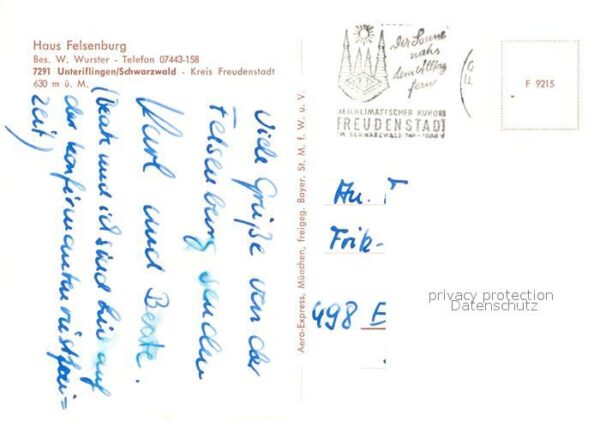 Haus Felsenburg
Bes. W. Wurster - Telefon 07443-158
7291 Unteriflingen/Schwarzwald - Kreis Freudenstadt
630 m ü. M.
Viele Grüße von der
Felsenburg senden
Karl und Beate.
(Beate und ich sind hier auf
der Konfirmantenrüstfrei=
zeit)
Aero-Express, München, freigeg. Bayer. St. M. f. W. u. V.
der Sonne
nah
dem Alltag
fern
HEILKLIMATISCHER KURORT
FREUDENSTADT
IM SCHWARZWALD
F 9215
An.
Frik-
498 E
privacy protection
Datenschutz